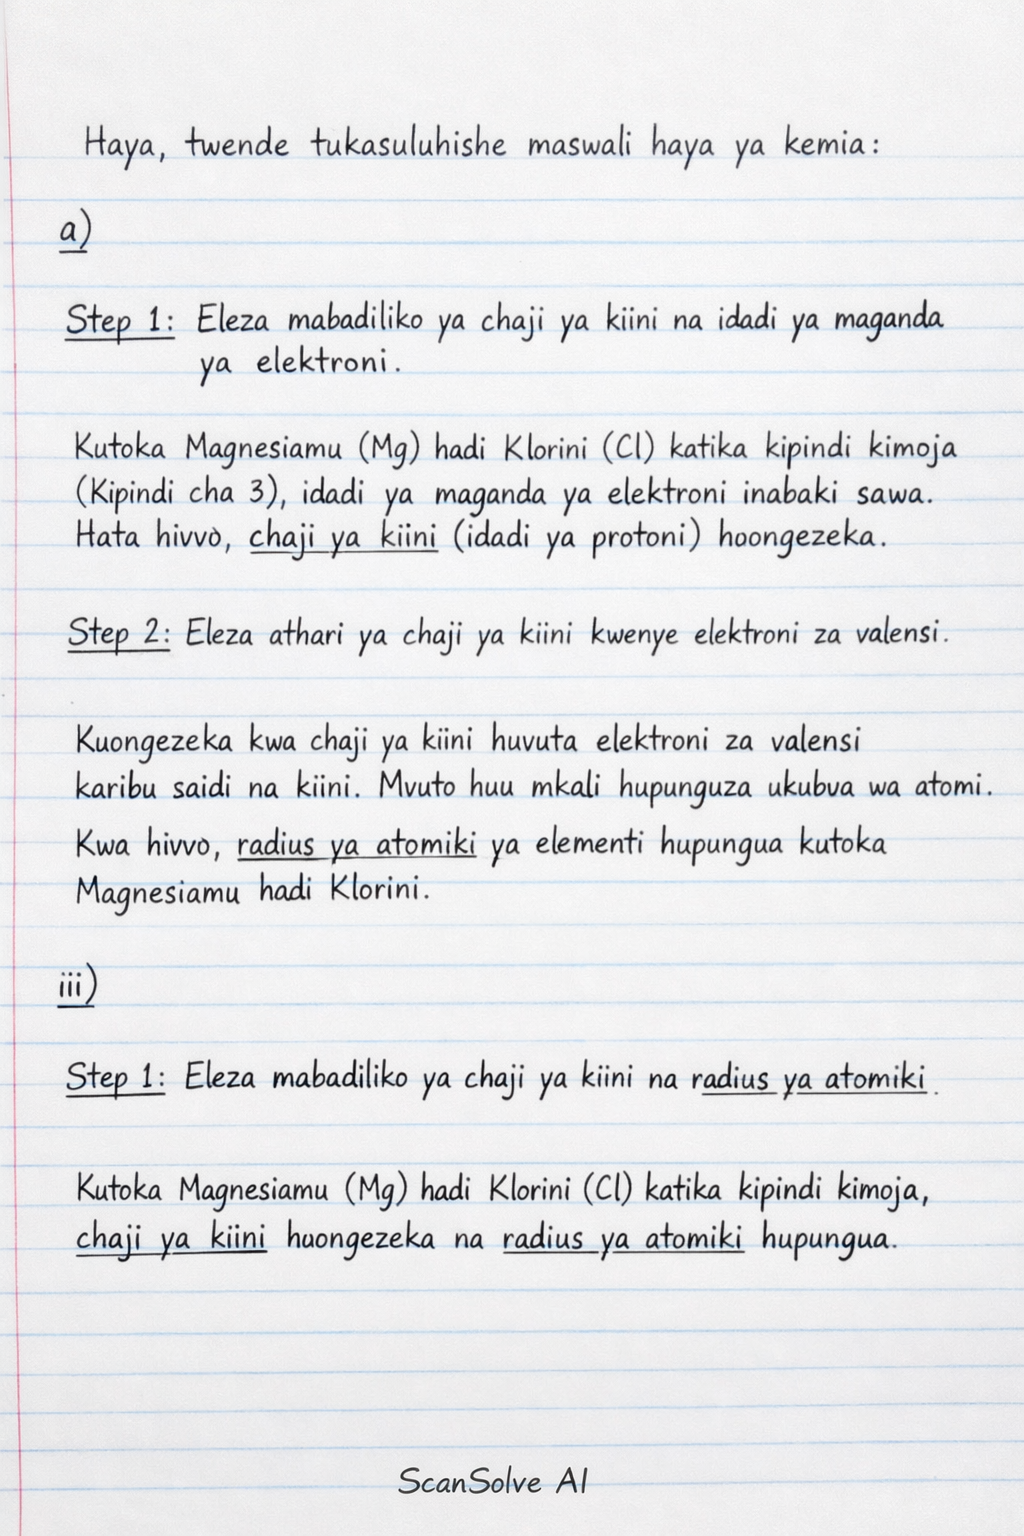 Haya, twende tukasuluhishe maswali haya ya kemia:
a)
Step 1: Eleza mabadiliko ya chaji ya kiini na idadi ya maganda
ya elektroni.
Kutoka Magnesiamu (Mg) hadi Klorini (Cl) katika kipindi kimoja
(Kipindi cha 3), idadi ya maganda ya elektroni inabaki sawa.
Hata hivvo, chaji ya kiini (idadi ya protoni) hoongezeka.
Step 2: Eleza athari ya chaji ya kiini kwenye elektroni za valensi.
Kuongezeka kwa chaji ya kiini huvuta elektroni za valensi
karibu saidi na kiini. Mvuto huu mkali hupunguza ukubva wa atomi.
Kwa hivvo, radius ya atomiki ya elementi hupungua kutoka
Magnesiamu hadi Klorini.
iii)
Step 1: Eleza mabadiliko ya chaji ya kiini na radius ya atomiki.
Kutoka Magnesiamu (Mg) hadi Klorini (Cl) katika kipindi kimoja,
chaji ya kiini huongezeka na radius ya atomiki hupungua.
ScanSolve AI